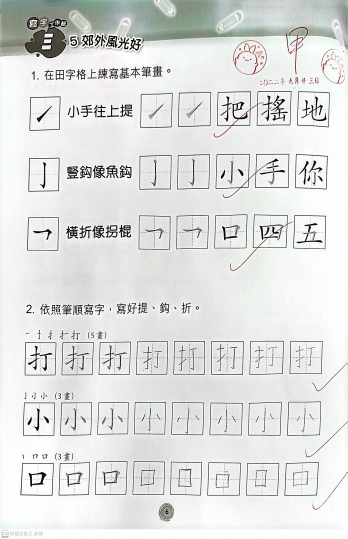 寫字
三 5 郊外風光好
甲
二〇二二年九月廿三日
1. 在田字格上練寫基本筆畫。
小手往上提 把 搖 地
豎鈎像魚鈎 小 手 你
橫折像拐棍 口 四 五
2. 依照筆順寫字，寫好提、鈎、折。
(5畫)
打 打 打 打 打 打 打 打
(3畫)
小 小 小 小 小 小 小 小
(3畫)
口 口 口 口 口 口 口 口
6